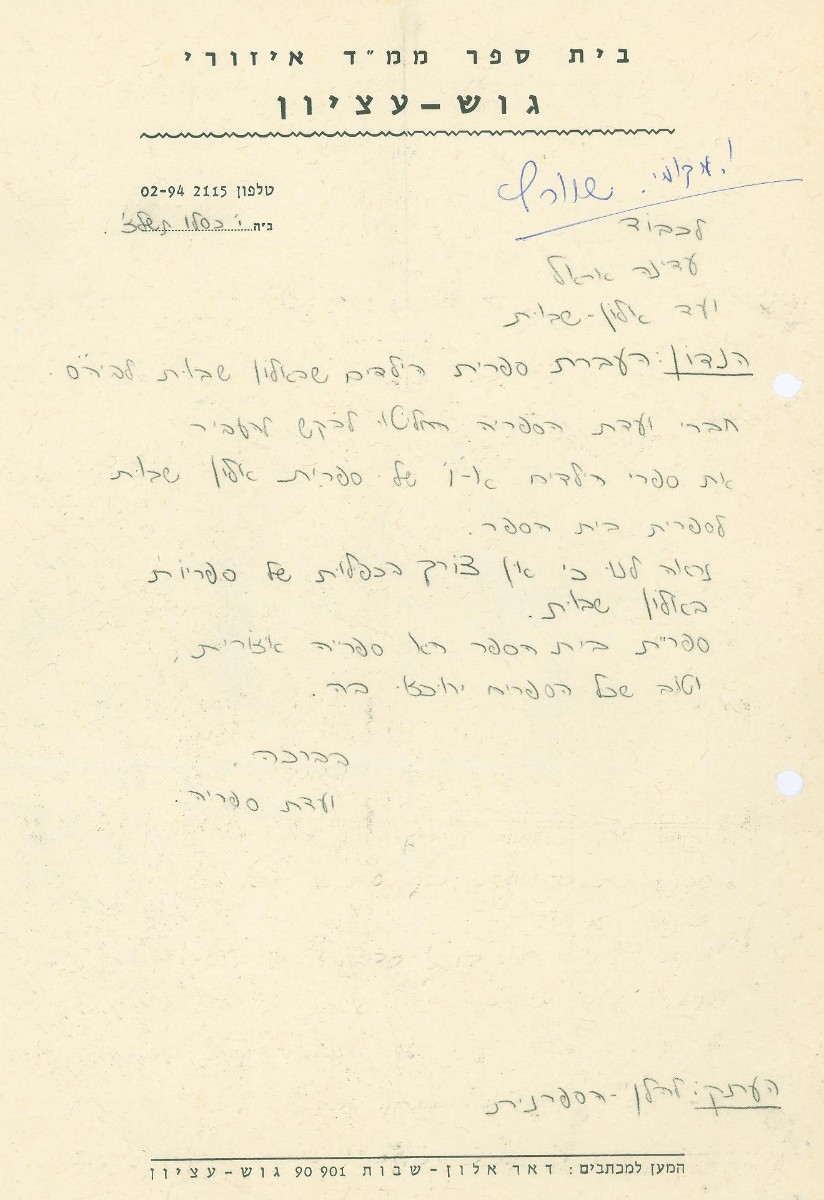 בית ספר ממ"ד איזורי
גוש-עציון
טלפון 2115 02-94
ב"ה י' כסלו
לכבוד
עדינה
ועד אלון-שבות
הנדון: העברת ספרית הילדים שבאלון שבות לביה"ס.
חברי ועדת הספריה החליטו לבקש להעביר
את ספרי הילדים א'-ו' של ספרית אלון שבות
לספרית בית הספר.
נראה לנו כי אין צורך בכפילות של ספריות
באלון שבות.
ספרית בית הספר היא ספריה אזורית,
וטוב שכל הספרים ירוכזו בה.
בברכה
ועדת ספריה.
העתק: להלן - הספרנית
המען למכתבים: דאר אלון-שבות 901 90 גוש-עציון